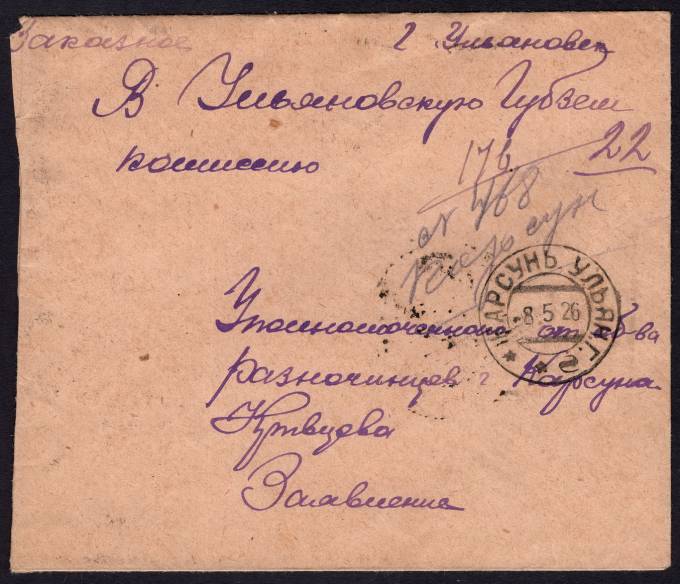 Заказное
г Ульяновск
В Ульяновскую Губзем
комиссию
22
176
№ 468
Карсун
КАРСУНЪ УЛЬЯН. Г.
-8 5 26
2
Уполномоченного от об-ва
разночинцев г Карсуна
Кривцева
Заявление